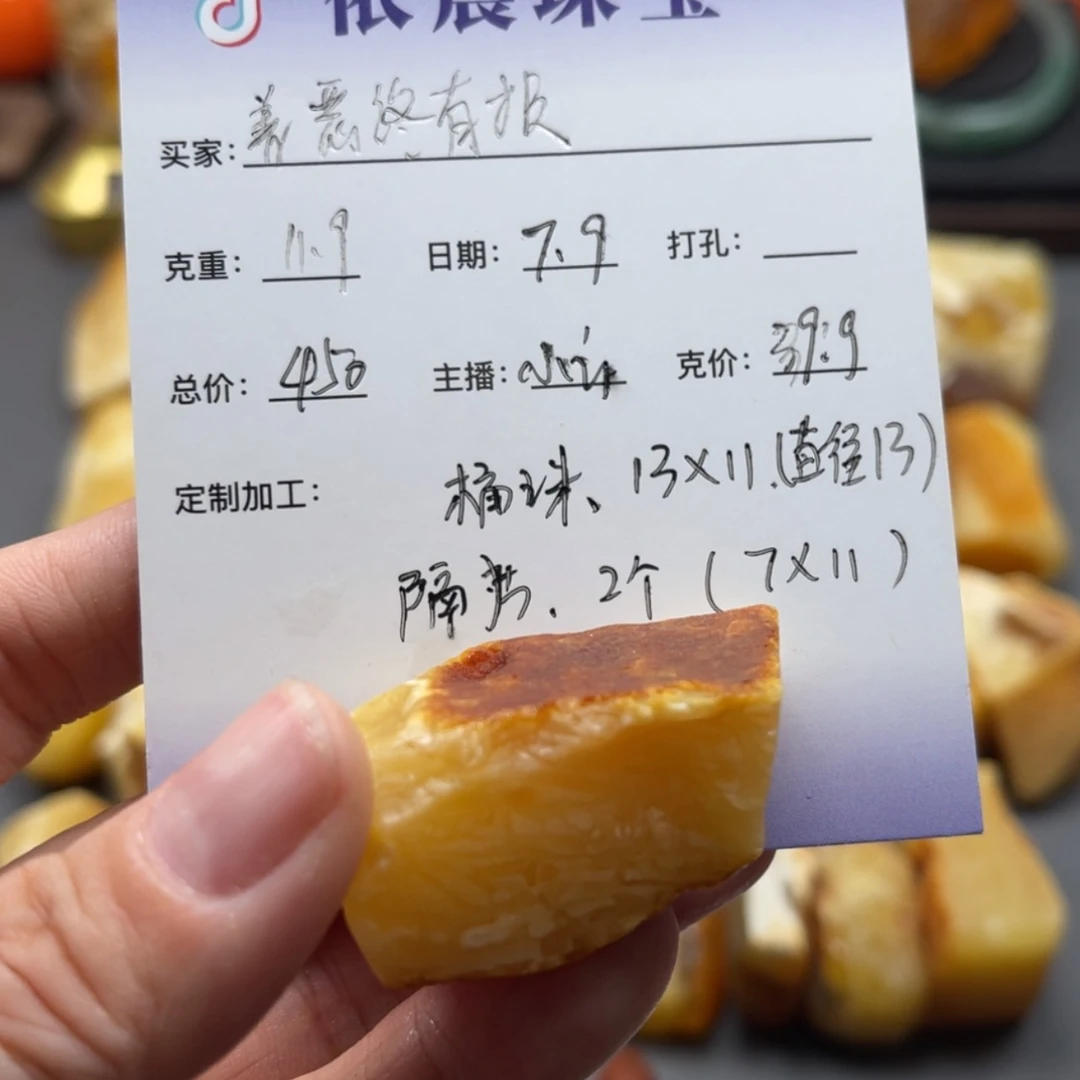 依晨珠宝
买家: 善恶终有报
克重: 11.9 日期: 7.9 打孔:
总价: 450 主播: 克价: 39.9
定制加工: 桶珠、13×11.(直径13)
隔片、2个(7×11)